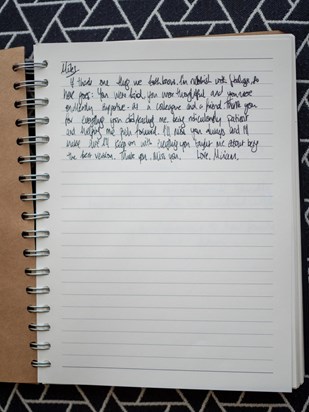 Mike,
If there one thing we both know, I'm rubbish with feelings. So
here goes: You were kind, you were thoughtful and you were
and a friend. Thank you
for everything you did, being ridiculously patient
and helping me push forward. I'll miss you always and I'll
make sure I'll keep on with everything you taught me about being
the best version. Thank you. Miss you. Love, Miriam.